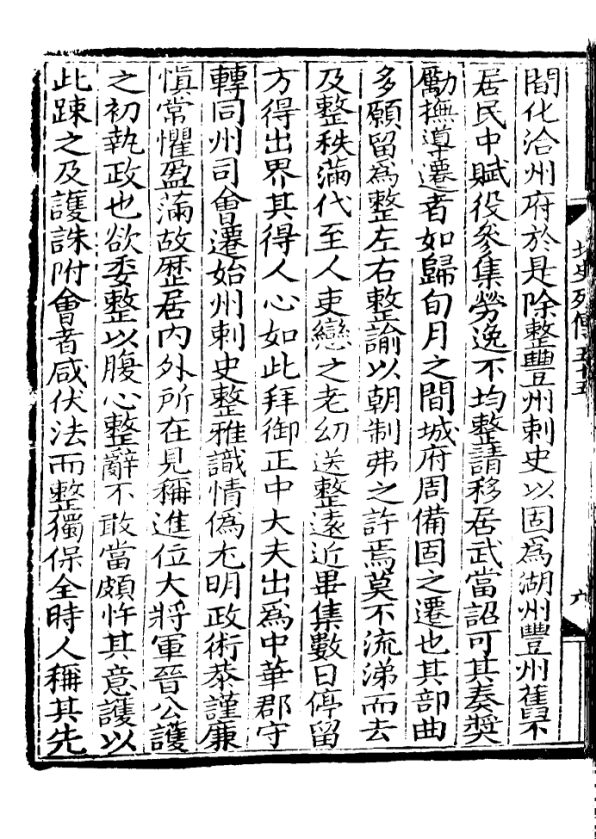 閤化洽州府於是除整豐州刺史以固爲湖州豐州舊
居民中賦役參集勞逸不均整請移居武當詔可其奏奬
勵撫導遷者如歸旬月之間城府周備固之遷也其部曲
多願留爲整左右整諭以朝制弗之許焉莫不流涕而去
及整秩滿代至人吏戀之老幼送整遠近畢集數日停留
方得出界其得人心如此拜御正中大夫出爲中華郡守
轉同州司會遷始州刺史整雅識情僞尤明政術恭謹廉
愼常懼盈滿故歷居內外所在見稱進位大將軍晉公護
之初執政也欲委整以腹心整辭不敢當頗忤其意護以
此踈之及護誅附會者咸伏法而整獨保全時人稱其先
北史列傳五十五
六